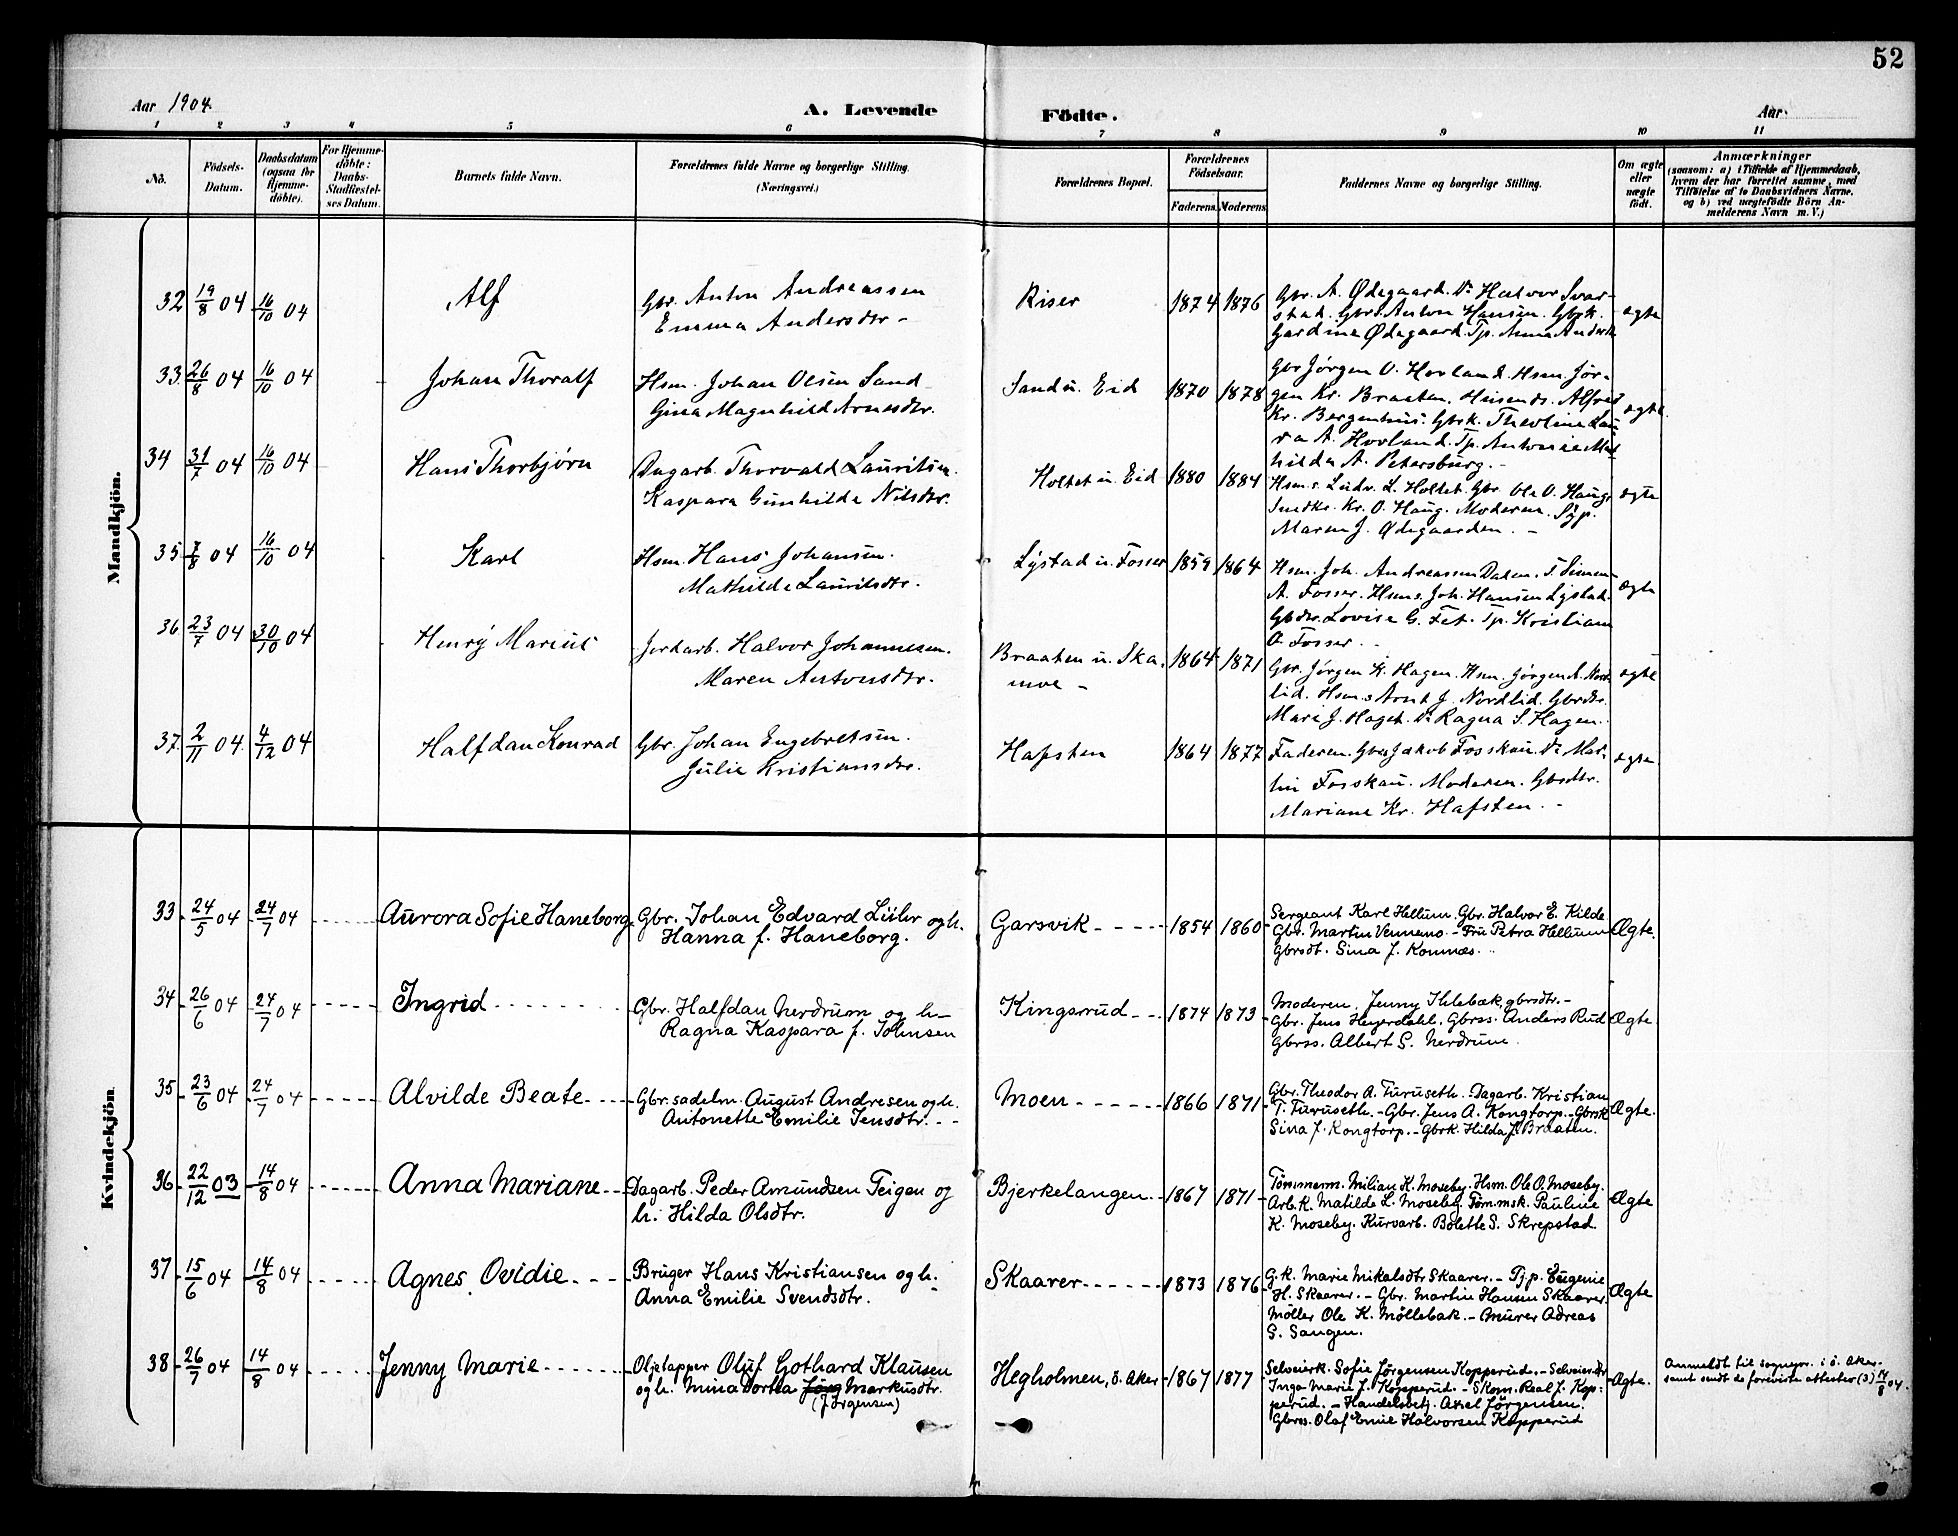 52
Aar 1904.
A. Levende Födte.
Aar
1 2 3 4 5 6 7 8 9 10 11
No.
Födsels-Datum.
Daabsdatum (ogsaa for Hjemme-döbte).
For Hjemme-döbte: Daabs-Stadfæstel-ses Datum.
Barnets fulde Navn.
Forældrenes fulde Navne og borgerlige Stilling.
(Næringsvei.)
Forældrenes Bopæl.
Forældrenes Födselsaar.
Faderens. Moderens.
Faddernes Navne og borgerlige Stilling.
Om ægte eller uægte födt.
Anmærkninger
(saasom: a) i Tilfælde af Hjemmedaab,
hvem der har forrettet samme, med
Tilföielse af to Daabsvidners Navne,
og b) ved uægtefödte Börn An-
melderens Navn m. V.)
Mandkjön.
32 19/8 04 16/10 04 Alf
Gbr. Anton Andreassen
Emma Andersdtr.
Riser 1874 1876
Gbr. A. Ødegaard. Do Halvor Svar-
stad. Gbrs. Anton Hansen. Gbrk.
Gardine Ødegaard. Tp. Anna Andersd.
ægte
33. 26/8 04 16/10 04 Johan Thoralf
Hsm. Johan Olsen Sand
Gina Magnhild Arnesdtr.
Sand u. Eid 1870 1878
Gbr Jørgen O. Hovland. Hsm. Jør-
gen Kr. Braaten. Alfred
Kr. Bergenhus. Gbrk. Theoline Lau
ra A. Hovland. Tp. Antonie Mat
hilde A. Petersburg.
ægte.
34 31/7 04 16/10 04 Hans Thorbjørn
Dagarb. Thorvald Lauritsen.
Kaspara Gunhilde Nilsdtr.
Holtet u. Eid 1880 1884
Hsm.s Ludv. L. Holtet. Gbr. Ole O. Haug.
Kr. O. Haug. Moderen. Syp.
Maren J. Ødegaarden.
ægte
35 7/8 04 16/10 04 Karl
Hsm. Hans Johansen.
Mathilde Lauritsdtr.
Lystad u. Fosser 1859 1864
Hsm. Joh. Andreassen Dalen. T. Simen
A. Fosser. Hsm.s Joh. Hansen Lystad.
Gbrdtr. Lovise G. Fet. Tp. Kristian
O. Fosser.
Ægte
36 23/7 04 30/10 04 Henry Marius
Jordarb. Halvor Johannesen.
Maren Antonsdtr.
Braaten u. Ska
moe 1864 1871
Gbr. Jørgen K. Hagen. Hsm. Jørgen A. Nord
lid. Hsm.s Arnt J. Nordlid. Gbrdtr.
Mare J. Haget. Do Ragna S. Hagen.
ægte
37. 2/11 04. 4/12 04 Halfdan Konrad
Gbr. Johan Engebretsen.
Julie Kristiansdtr.
Hafsten 1864 1877
Faderen. Gbrs Jakob Fosskau. Do Mar-
tin Fosskau. Moderen. Gbrdtr.
Mariane Kr. Hafsten.
ægte
Kvindekjön
33 24/5 04 24/7 04 Aurora Sofie Haneborg
Gbr. Johan Edvard Lühr og h.
Hanna f. Haneborg.
Garsvik 1854 1860
Sergeant Karl Hellum. Gbr. Halvor E. Kilde
Gbr. Martin Venneno. - Fru Petra Hellum
Gbrsdt. Sina J. Komnæs.
Ægte.
34 26/6 04 24/7 04 Ingrid
Gbr. Halfdan Nerdrum og h-
Ragna Kaspara f. Johnsen
Kingsrud 1874 1873
Moderen. Jenny Ihlebæk, gbrsdtr. -
Gbr. Jens Heyerdahl. Gbrss. Anders Rud
Gbrss. Albert S. Nerdrum.
Ægte.
35 23/6 04 24/7 04 Alvilde Beate
Gbr. sadelm. August Andresen og h.
Antonette Emilie Jensdtr.
Moen 1866 1871
Gbr. Theodor A. Turuseth. - Dagarb. Kristian
T. Turuseth. - Gbr. Jens A. Kongtorp. - Gbrsk
Sina J. Kongtorp. - Gbrk. Hilda J. Braaten.
Ægte.
36 22/12 03 14/8 04 Anna Mariane
Dagarb. Peder Amundsen Teigen og
h. Hilda Olsdtr.
Bjerkelangen 1867 1871
Tømmerm. Milian K. Moseby. Hsm. Ole O. Moseby.
Arb. k. Matilde L. Moseby. Tøm.msk. Pauline
K. Moseby. Kurvarb. Bolette S. Skrepstad.
Ægte
37 15/6 04 14/8 04 Agnes Ovidie
Brüger Hans Kristiansen og h.
Anna Emilie Svendsdtr.
Skaarer 1873 1876
G.k. Marie Mikalsdtr Skaarer. - Tj.p. Eugenie
H. Skaarer. - Gbr. Martin Hansen Skaarer.
Möller Ole K. Möllebak. - Murer Adreas
S. Sangen.
Ægte
38 26/7 04 14/8 04 Jenny Marie
Oljetapper Oluf Gothard Klausen
og h. Mina Dortea Jörg Markusdtr.
(Jørgensen)
Hegholmen, ö. Aker 1867 1877
Selveierk. Sofie Jørgensen Kopperud. - Selveierdtr
Inga Marie J. Kopperud. - Skom. Real J. Kop-
perud. - Handelsbetj. Axel Jørgensen.
Gbrss. Olaf Emil Halvorsen Kopperud
Ægte.
Anmeldt til sognepr. i ö. Aker.
samt sendt de foreviste attester (3) 14/8 04.